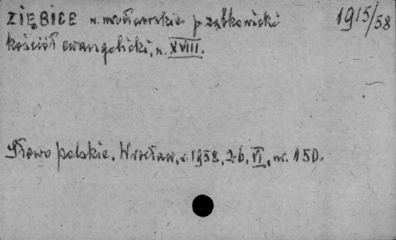 ZIĘBICE w. wrocławskie p. ząbkowicki 1915/58
kościół ewangelicki, w. XVIII.
Słowo polskie. Wrocław, r. 1958, 26, VI, nr. 150.